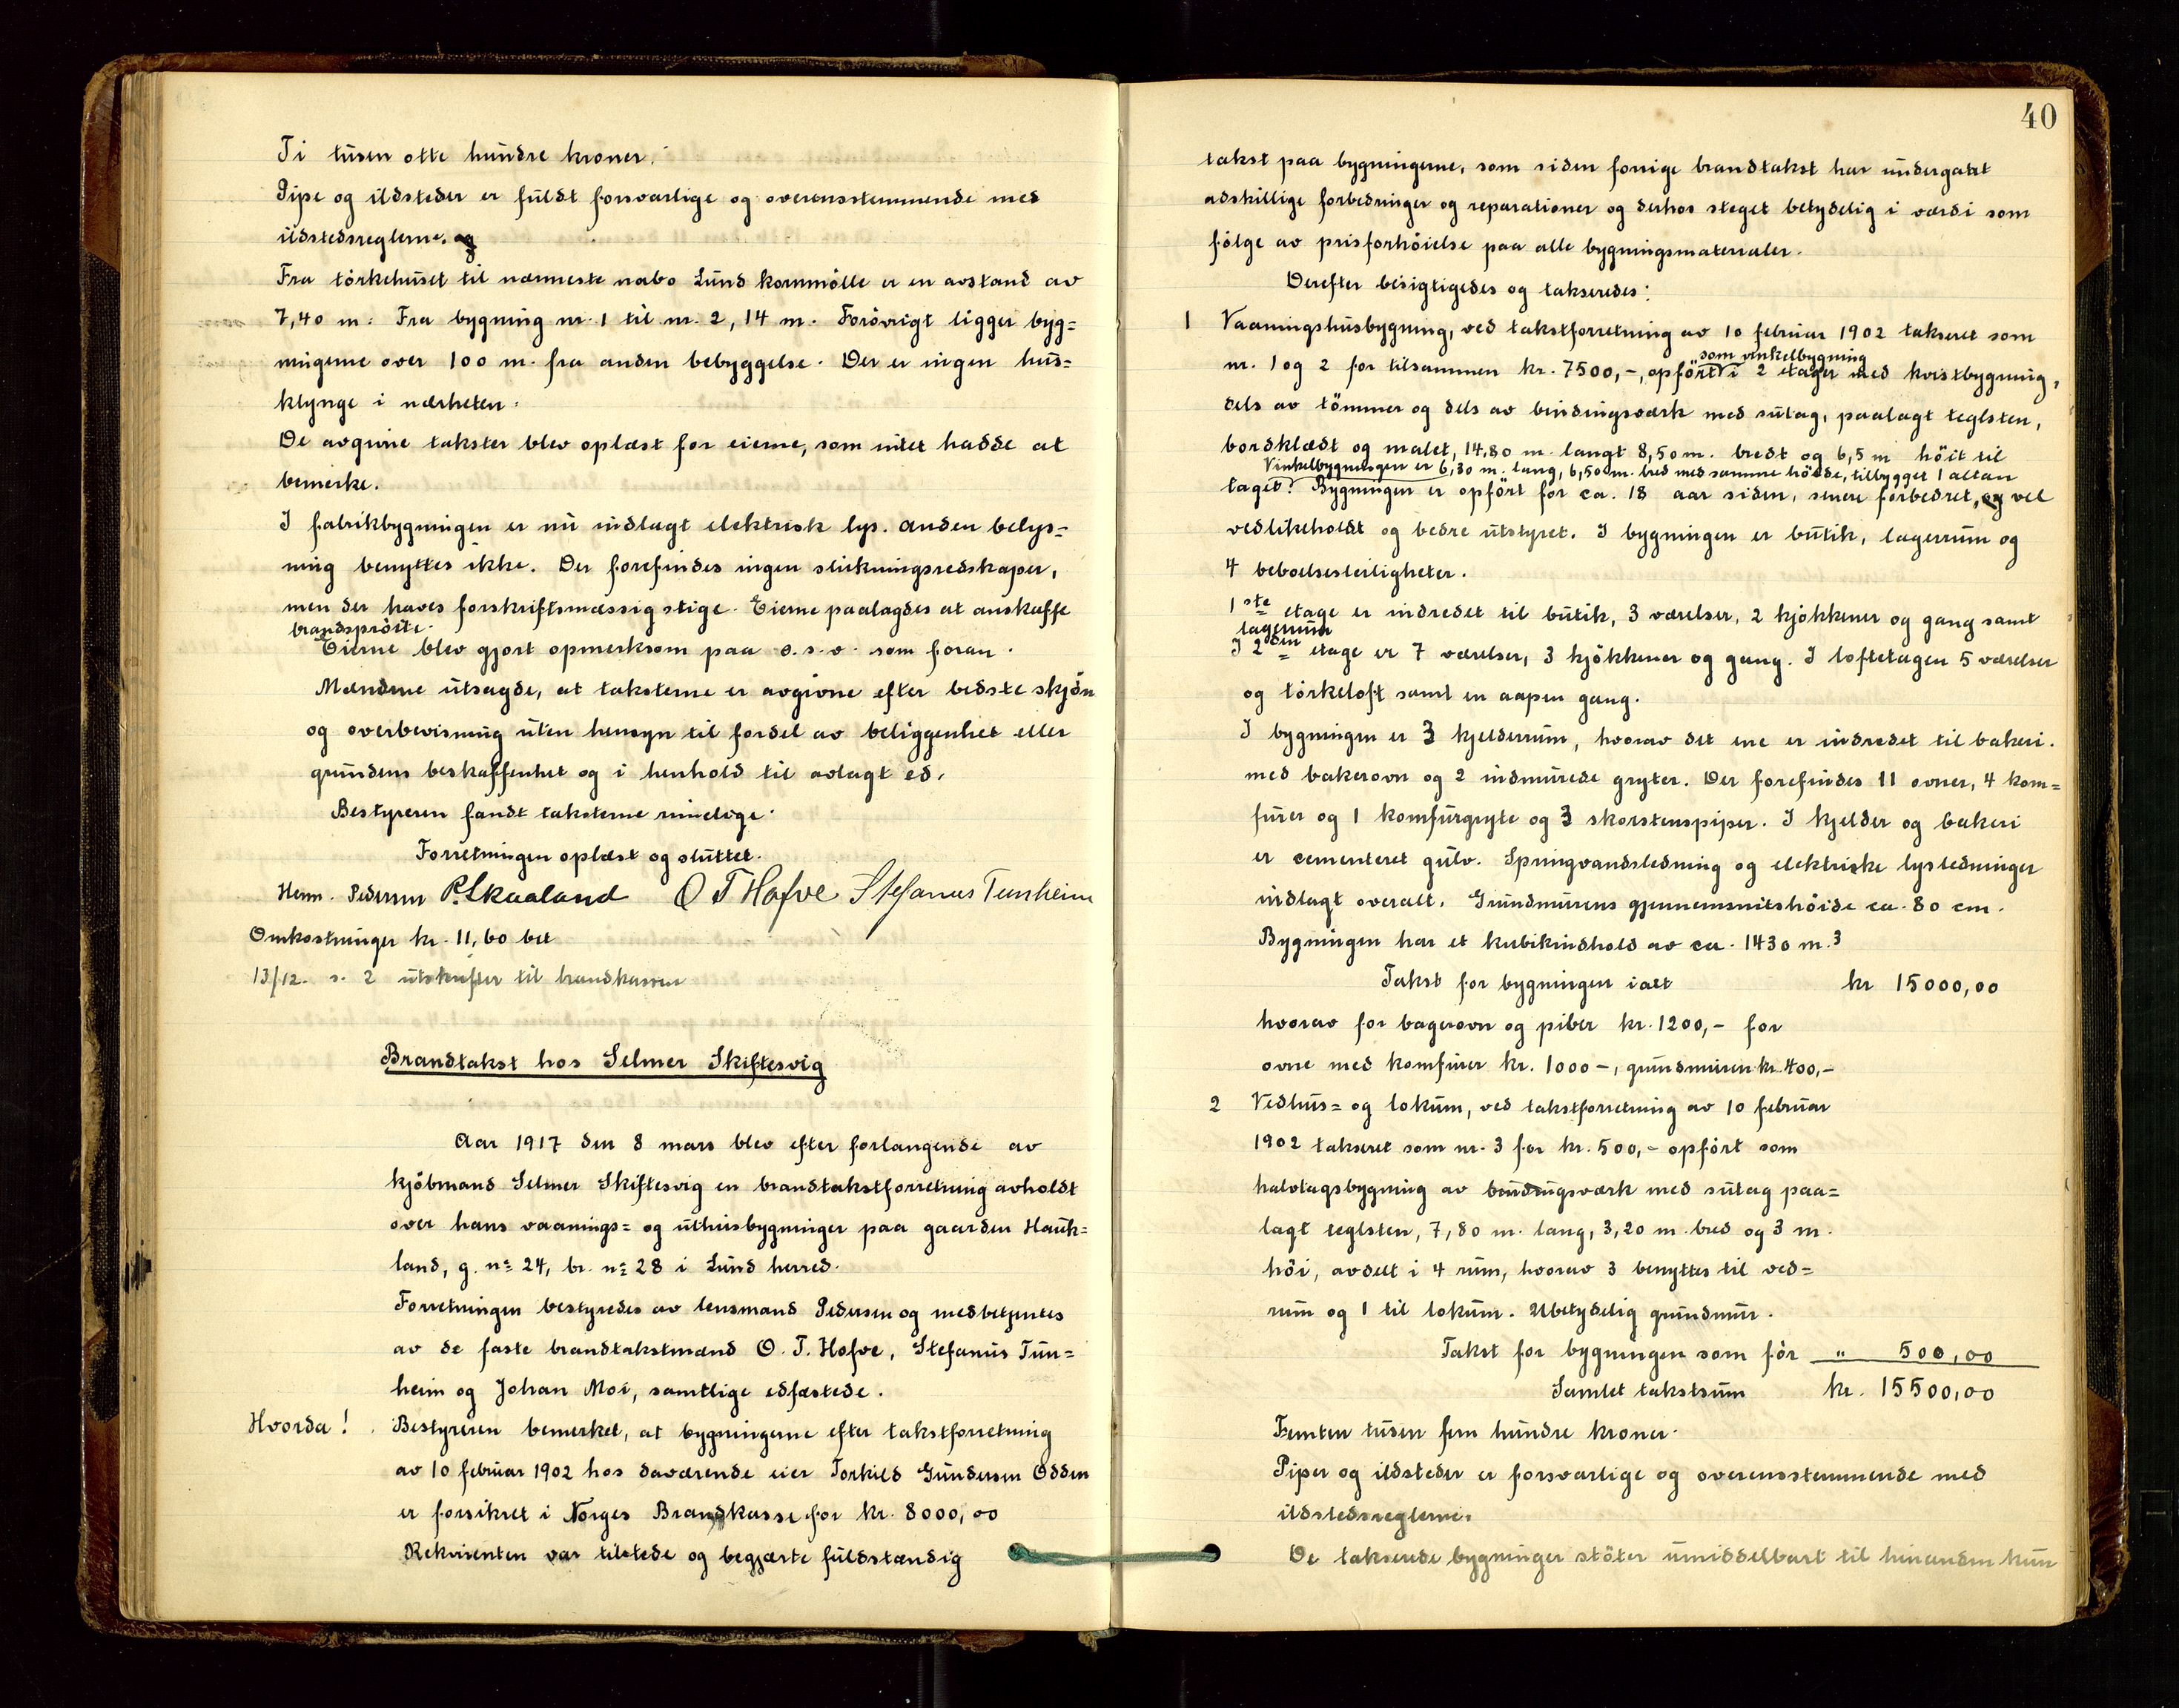 Ti tusen otte hundre kroner.
Pipe og ildsteder er fuldt forsvarlige og overensstemmende med
ildstedsreglerne.
Fra törkehuset til nærmeste nabo Lund kornmölle er en avstand av
7,40 m. Fra bygning nr. 1 til nr. 2, 14 m. Forövrigt ligger byg=
ningerne over 100 m. fra anden bebyggelse. Der er ingen hus=
klynge i nærheten.
De avgivne takster blev oplæst for eierne, som intet hadde at
bemerke.
I fabrikbygningen er nu indlagt elektrisk lys. Anden belys=
ning benyttes ikke. Der forefindes ingen slukningsredskaper,
men der haves forskriftsmæssig stige. Eierne paalagdes at anskaffe
brandspröite.
Eierne blev gjort opmerksom paa o.s.v. som foran.
Mændene utsagde, at taksterne er avgivne efter bedste skjön
og overbevisning uten hensyn til fordel av beliggenhet eller
grundens beskaffenhet og i henhold til avlagt ed.
Bestyreren fandt taksterne rimelige.
Forretningen oplæst og sluttet.
Herm. Pedersen P. Skaaland O T Hofve Stefanus Tunheim
Omkostninger kr. 11,60 bet
13/12. s. 2 utskrifter til brandkassen
Brandtakst hos Selmer Skiftesvig
Aar 1917 den 8 mars blev efter forlangende av
kjöbmand Selmer Skiftesvig en brandtakstforretning avholdt
over hans vaanings= og uthusbygninger paa gaarden Hauk=
land, g. nº 24, br. nº 28 i Lund herred.
Forretningen bestyredes av lensmand Pedersen og medbetjentes
av de faste brandtakstmænd O. T. Hofve, Stefanus Tun=
heim og Johan Moi, samtlige edfæstede.
Hvorda! Bestyreren bemerket, at bygningerne efter takstforretning
av 10 februar 1902 hos daværende eier Torkild Gundersen Ødden
er forsikret i Norges Brandkasse for kr. 8000,00
Rekvirenten var tilstede og begjærte fuldstændig
40
takst paa bygningerne, som siden forrige brandtakst har undergaat
adskillige forbedringer og reparationer og derhos steget betydelig i værdi som
fölge av prisforhöielse paa alle bygningsmaterialer.
Derefter besigtigedes og takseredes:
1 Vaaningshusbygning, ved takstforretning av 10 februar 1902 takseret som
som vinkelbygning
nr. 1 og 2 for tilsammen kr. 7500,-, opfört i 2 etager med kvistbygning,
dels av tömmer og dels av bindingsværk med sutag, paalagt teglsten,
bordklædt og malet, 14,80 m. langt 8,50 m. bredt og 6,5 m höit til
Vinkelbygningen er 6,30 m. lang, 6,50 m. bred med samme höide, tilbygget 1 altan
taget. Bygningen er opfört for ca. 18 aar siden, senere forbedret, og vel
vedlikeholdt og bedre utstyret. I bygningen er butik, lagerrum og
4 beboelsesleiligheter.
1ste etage er indredet til butik, 3 værelser, 2 kjökkener og gang samt
lagerrum
I 2den etage er 7 værelser, 3 kjökkener og gang. I loftetagen 5 værelser
og törkeloft samt en aapen gang.
I bygningen er 3 kjelderrum, hvorav det ene er indredet til bakeri.
med bakerovn og 2 indmurede gryter. Der forefindes 11 ovner, 4 kom=
furer og 1 komfurgryte og 3 skorstenspiper. I kjelder og bakeri
er cementeret gulv. Springvandsledning og elektriske lysledninger
indlagt overalt. Grundmurens gjennemsnitshöide ca. 80 cm.
Bygningen har et kubikindhold av ca. 1430 m.3
Takst for bygningen ialt kr 15000,00
hvorav for bagerovn og piber kr. 1200,- for
ovne med komfurer kr. 1000-, grundmuren kr 400,-
2 Vedhus= og lokum, ved takstforretning av 10 februar
1902 takseret som nr. 3 for kr. 500,- opfört som
halvtagsbygning av bindingsværk med sutag paa=
lagt teglsten, 7,80 m. lang, 3,20 m. bred og 3 m.
höi, avdelt i 4 rum, hvorav 3 benyttes til ved=
rum og 1 til lokum. Ubetydelig grundmur.
Takst for bygningen som för " 500,00
Samlet takstsum kr. 15500,00
Femten tusen fem hundre kroner.
Piper og ildsteder er forsvarlige og overensstemmende med
ildstedsreglerne.
De takserede bygninger stöter umiddelbart til hinanden kun